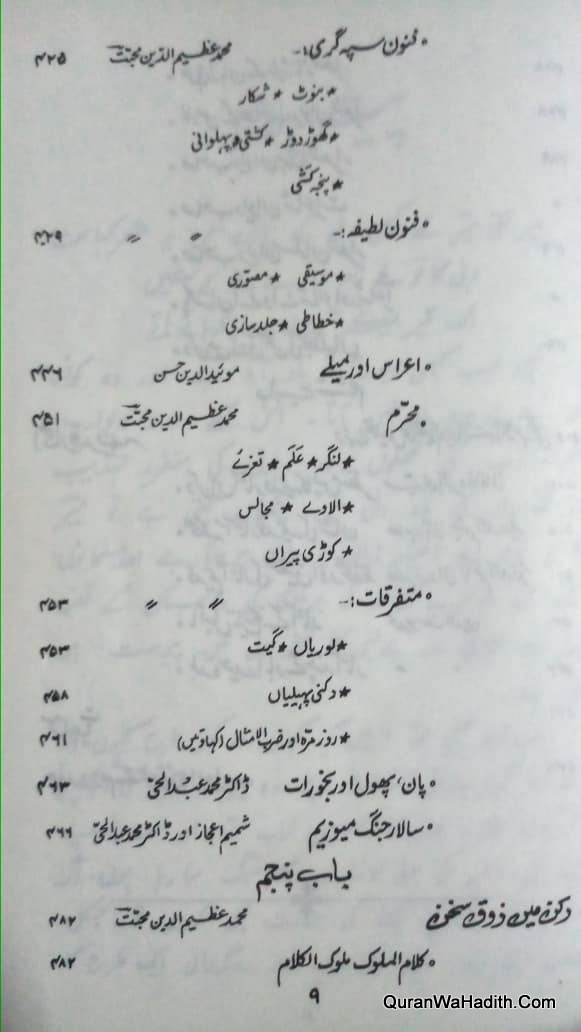 • فنون سپہ گری:- محمد عظیم الدین محبّت ۴۲۵
★ بنوٹ ★ شکار
★ گھوڑ دوڑ ★ کشتی و پہلوانی
★ پنجہ کشی
• فنون لطیفہ:- 〃 〃 ۴۲۹
★ موسیقی ★ مصوّری
★ خطاطی ★ جلد سازی
• اعراس اور میلے موئید الدین حسن ۴۴۶
• محرّم محمد عظیم الدین محبّت ۴۵۱
★ لنگر ★ عَلَم ★ تعزئے
★ الاوے ★ مجالس
★ کوڑی پیراں
• متفرقات:- 〃 〃 ۴۵۳
★ لوریاں ★ گیت ۴۵۳
★ دکنی پہیلیاں ۴۵۸
★ روز مرّہ اور ضرب الامثال (کہاوتیں) ۴۶۱
• پان، پھول اور بخورات ڈاکٹر محمد عبدالحئی ۴۶۳
• سالار جنگ میوزیم شمیم اعجاز اور ڈاکٹر محمد عبدالحئی ۴۶۶
باب پنجم
دکن میں ذوق سخن محمد عظیم الدین محبّت ۴۸۲
• کلام الملوک ملوک الکلام ۴۸۲
۹
QuranWaHadith.Com